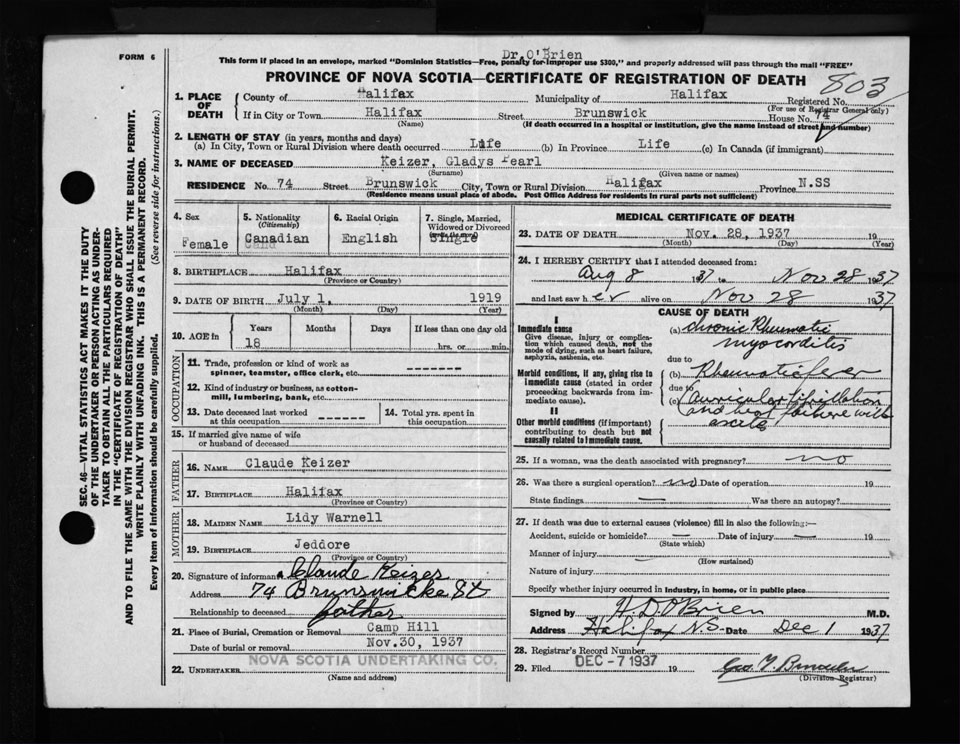 FORM 6
Dr. O'Brien
This form if placed in an envelope, marked "Dominion Statistics—Free, penalty for improper use $300," and properly addressed will pass through the mail "FREE"
PROVINCE OF NOVA SCOTIA—CERTIFICATE OF REGISTRATION OF DEATH
803
1. PLACE OF DEATH
County of Halifax Municipality of Halifax Registered No.
(For use of Registrar General only)
If in City or Town Halifax Street Brunswick House No. 74
(Name) (If death occurred in a hospital or institution, give the name instead of street and number)
2. LENGTH OF STAY (in years, months and days)
(a) In City, Town or Rural Division where death occurred Life (b) In Province Life (c) In Canada (if immigrant)
3. NAME OF DECEASED Keizer, Gladys Pearl
(Surname) (Given name or names)
RESIDENCE No. 74 Street Brunswick City, Town or Rural Division Halifax Province N.SS
(Residence means usual place of abode. Post Office Address for residents in rural parts not sufficient)
4. Sex
Female
5. Nationality
(Citizenship)
Canadian
6. Racial Origin
English
7. Single, Married,
Widowed or Divorced
Single
8. BIRTHPLACE Halifax
(Province or Country)
9. DATE OF BIRTH July 1, 1919
(Month) (Day) (Year)
10. AGE in
Years Months Days If less than one day old
18 hrs. or min.
OCCUPATION
11. Trade, profession or kind of work as
spinner, teamster, office clerk, etc. -------
12. Kind of industry or business, as cotton-
mill, lumbering, bank, etc.
13. Date deceased last worked
at this occupation ------
14. Total yrs. spent in
this occupation
15. If married give name of wife
or husband of deceased
FATHER
16. NAME Claude Keizer
17. BIRTHPLACE Halifax
(Province or Country)
MOTHER
18. MAIDEN NAME Lidy Warnell
19. BIRTHPLACE Jeddore
(Province or Country)
20. Signature of informant Claude Keizer
Address 74 Brunswicke St
Relationship to deceased father
21. Place of Burial, Cremation or Removal Camp Hill
Date of burial or removal Nov.30, 1937
22. UNDERTAKER NOVA SCOTIA UNDERTAKING CO.
(Name and address)
MEDICAL CERTIFICATE OF DEATH
23. DATE OF DEATH Nov. 28, 1937 19
(Month) (Day) (Year)
24. I HEREBY CERTIFY that I attended deceased from:
Aug 8 1937 to Nov 28 1937
and last saw her alive on Nov 28 1937
CAUSE OF DEATH
I
Immediate cause
Give disease, injury or complica-
tion which caused death, not the
mode of dying, such as heart failure,
asphyxia, asthenia, etc.
(a) Chronic Rheumatic
myocorditis
due to
Morbid conditions, if any, giving rise to
immediate cause (stated in order
proceeding backwards from im-
mediate cause).
(b) Rheumatic fever
due to
(c) Auricular fibrillation
and heart failure with
ascites
II
Other morbid conditions (if important)
contributing to death but not
causally related to immediate cause.
25. If a woman, was the death associated with pregnancy? no
26. Was there a surgical operation? no Date of operation 19
State findings — Was there an autopsy?
27. If death was due to external causes (violence) fill in also the following:—
Accident, suicide or homicide? — Date of injury — 19
(State which)
Manner of injury —
(How sustained)
Nature of injury
Specify whether injury occurred in industry, in home, or in public place
Signed by H. D. O'Brien M.D.
Address Halifax N.S. Date Dec 1 1937
28. Registrar's Record Number
29. Filed DEC -7 1937 19
(Division Registrar)
SEC. 46—VITAL STATISTICS ACT MAKES IT THE DUTY
OF THE UNDERTAKER OR PERSON ACTING AS UNDER-
TAKER TO OBTAIN ALL THE PARTICULARS REQUIRED
IN THE "CERTIFICATE OF REGISTRATION OF DEATH"
AND TO FILE THE SAME WITH THE DIVISION REGISTRAR WHO SHALL ISSUE THE BURIAL PERMIT.
WRITE PLAINLY WITH UNFADING INK. THIS IS A PERMANENT RECORD.
Every item of information should be carefully supplied. (See reverse side for instructions.)